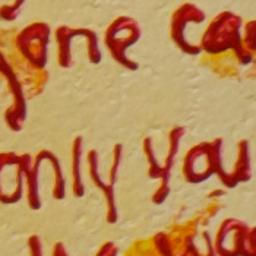 one ca
only you